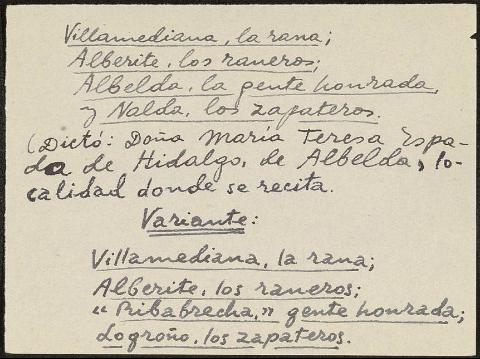 Villamediana, la rana;
Alberite, los raneros;
Albelda, la gente honrada,
y Nalda, los zapateros.
(Dictó: Doña María Teresa Espa-
da de Hidalgo, de Albelda, lo-
calidad donde se recita.
Variante:
Villamediana, la rana;
Alberite, los raneros;
"Ribabrecha," gente honrada;
Logroño, los zapateros.